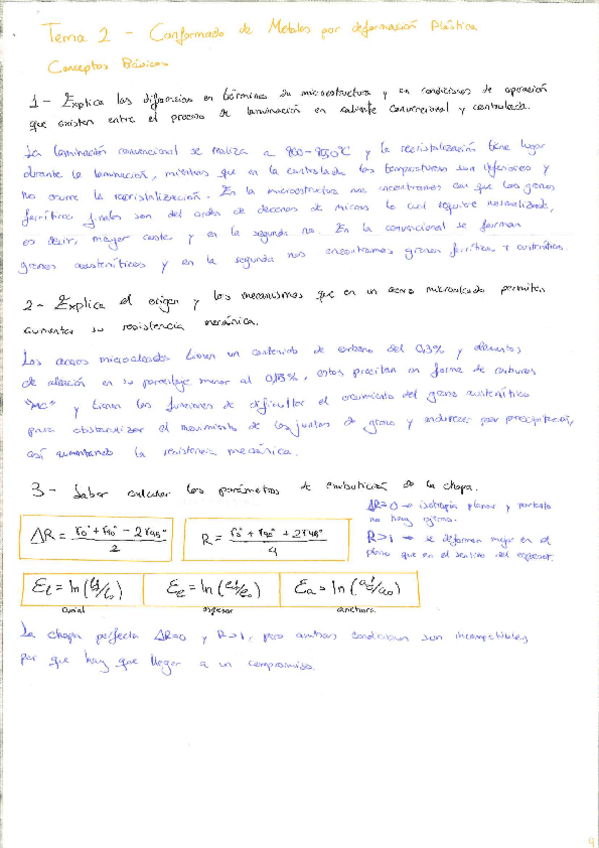 Tema 2 - Conformado de Metales por deformación Plástica
Conceptos Básicos
1- Explica las diferencias en términos de microestructura y en condiciones de operación
que existen entre el proceso de laminación en caliente convencional y controlada.
La laminación convencional se realiza a y la recristalización tiene lugar
durante la laminación, mientras que en la controlada las temperaturas son inferiores y
no ocurre la recristalización. En la microestructura nos encontramos con que los granos
ferríticos finales son del orden de decenas de micras lo cual requiere normalizado,
es decir, mayor coste y en la segunda no. En la convencional se forman
granos austeníticos y en la segunda nos encontramos granos ferríticos + austeníticos.
2- Explica el origen y los mecanismos que en un acero microaleado permiten
aumentar su resistencia mecánica.
Los aceros microaleados tienen un contenido de carbono del 0,3% y elementos
de aleación en su porcentaje menor al 0,15%, estos precitan en forma de carburos
"MC" y tienen las funciones de dificultar el crecimiento del grano austenítico
para obstaculizar el movimiento de las juntas de grano y endurecer por precipitación,
así aumentando la resistencia mecánica.
3- Saber calcular los parámetros de embutición de la chapa.
ΔR = r0° + r90° - 2r45° / 2
R = r0° + r90° + 2r45° / 4
ΔR=0 → isotropía planar y por tanto
no hay orejas.
R>1 → se deforman mejor en el
plano que en el sentido del espesor.
εl = ln(lf/l0) εe = ln(ef/e0) εa = ln(af/a0)
axial espesor anchura
La chapa perfecta ΔR=0 y R>1, pero ambas condiciones son incompatibles
por que hay que llegar a un compromiso.